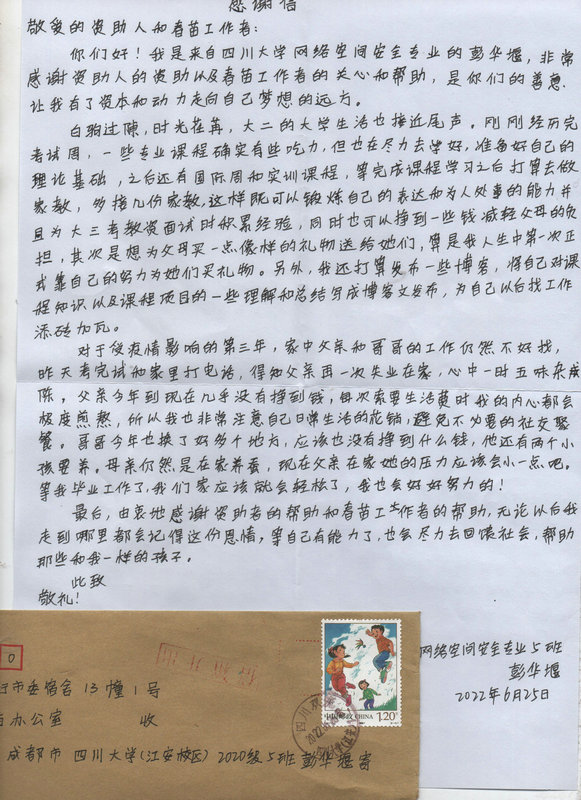 感谢信
敬爱的资助人和春苗工作者：
你们好！我是来自四川大学网络空间安全专业的彭华堰，非常
感谢资助人的资助以及春苗工作者的关心和帮助，是你们的善意
让我有了资本和动力走向自己梦想的远方。
白驹过隙，时光荏苒，大二的大学生活也接近尾声。刚刚经历完
考试周，一些专业课程确实有些吃力，但也在尽力去学好，准备好自己的
理论基础，之后还有国际周和实训课程，等完成课程学习之后打算去做
家教，多接几份家教，这样既可以锻炼自己的表达和为人处事的能力并
且为大三考教资面试时积累经验，同时也可以挣到一些钱减轻父母的负
担，其次是想为父母买一点像样的礼物送给她们，算是我人生中第一次正
式靠自己的努力为她们买礼物。另外，我还打算发布一些博客，将自己对课
程知识以及课程项目的一些理解和总结写成博客文发布，为自己以后找工作
添砖加瓦。
对于受疫情影响的第三年，家中父亲和哥哥的工作仍然不好找，
昨天考完试和家里打电话，得知父亲再一次失业在家，心中一时五味杂成
陈。父亲今年到现在几乎没有挣到钱，每次索要生活费时我的内心都会
极度煎熬，所以我也非常注意自己日常生活的花销，避免不必要的社交聚
餐。哥哥今年也换了好多个地方，应该也没有挣到什么钱，他还有两个小
孩要养。母亲仍然是在家养蚕，现在父亲在家她的压力应该会小一点吧。
等我毕业工作了，我们家应该就会轻松了，我也会好好努力的！
最后，由衷地感谢资助者的帮助和春苗工作者的帮助，无论以后我
走到哪里都会记得这份恩情，等自己有能力了，也会尽力去回馈社会，帮助
那些和我一样的孩子。
此致
敬礼！
网络空间安全专业5班
彭华堰
2022年6月25日
0
市委宿舍13幢1号
办公室 收
成都市 四川大学(江安校区) 2020级5班彭华堰寄
中国邮政 CHINA 1.20
四川